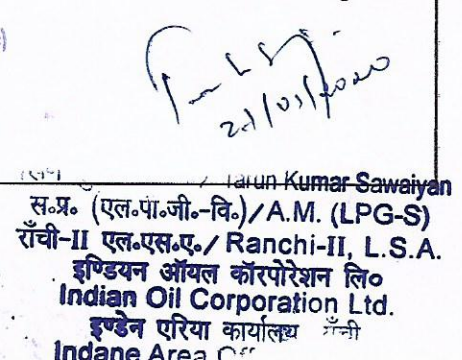 Tarun Kumar Sawaiyan
स॰प्र॰ (एल॰पी॰जी॰-वि॰)/A.M. (LPG-S)
राँची-II एल॰एस॰ए॰/ Ranchi-II, L.S.A.
इण्डियन ऑयल कॉरपोरेशन लि०
Indian Oil Corporation Ltd.
इण्डेन एरिया कार्यालय राँची
Indane Area